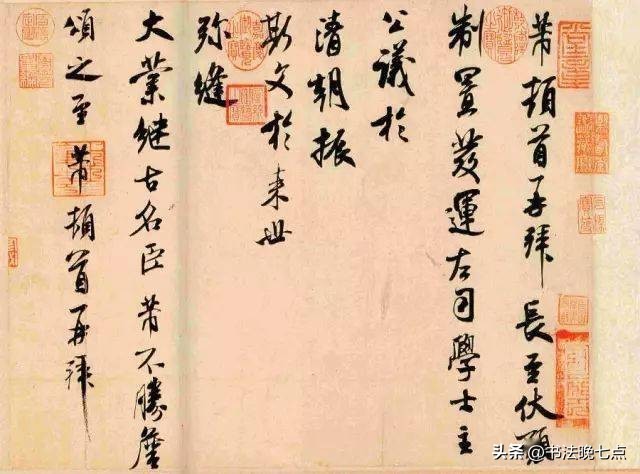 芾頓首再拜長至伏願
制置發運左司學士主
公議於
清朝振
斯文於来世
弥縫
大業継古名臣芾不勝詹
頌之至芾頓首再拜
头条 @书法晚七点